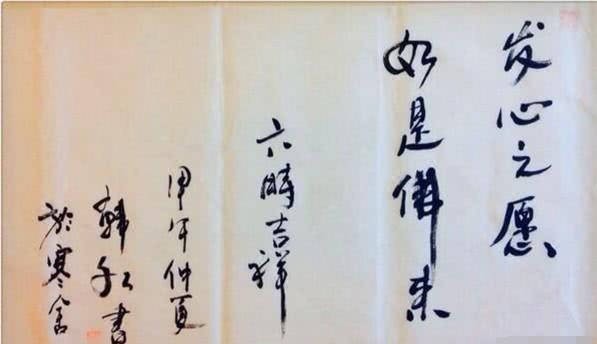 发心之愿
如是来
六時吉祥
甲午仲夏
韩红書
於寒舍